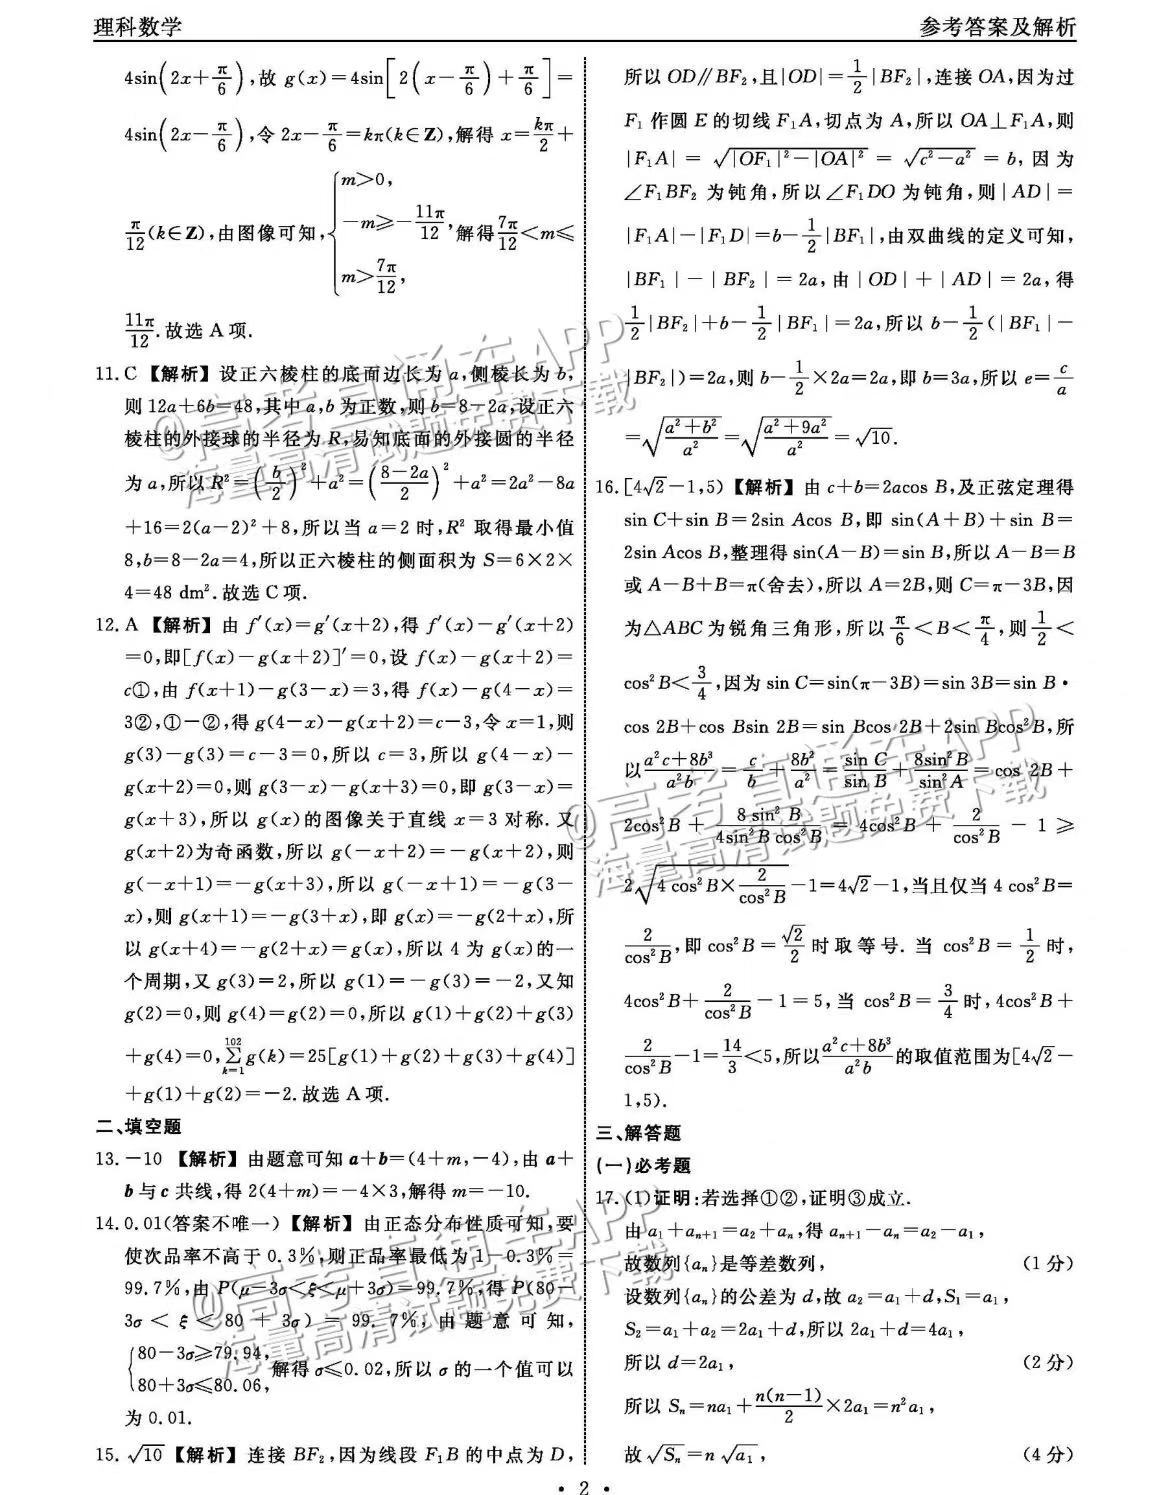 理科数学
参考答案及解析
4sin(2x+π/6),故 g(x)=4sin[2(x-π/6)+π/6]=
4sin(2x-π/6),令 2x-π/6=kπ(k∈Z),解得 x=kπ/2+
π/12(k∈Z),由图像可知,{m>0, -m≥-11π/12, m>7π/12, 解得7π/12<m≤
11π/12.故选 A 项.
11.C 【解析】设正六棱柱的底面边长为 a,侧棱长为 b,
则 12a+6b=48,其中 a,b 为正数,则 b=8-2a,设正六
棱柱的外接球的半径为 R,易知底面的外接圆的半径
为 a,所以 R²=(b/2)²+a²=((8-2a)/2)²+a²=2a²-8a
+16=2(a-2)²+8,所以当 a=2 时,R² 取得最小值
8,b=8-2a=4,所以正六棱柱的侧面积为 S=6×2×
4=48 dm².故选 C 项.
12.A 【解析】由 f′(x)=g′(x+2),得 f′(x)-g′(x+2)
=0,即[f(x)-g(x+2)]′=0,设 f(x)-g(x+2)=
c①,由 f(x+1)-g(3-x)=3,得 f(x)-g(4-x)=
3②,①-②,得 g(4-x)-g(x+2)=c-3,令 x=1,则
g(3)-g(3)=c-3=0,所以 c=3,所以 g(4-x)-
g(x+2)=0,则 g(3-x)-g(x+3)=0,即 g(3-x)=
g(x+3),所以 g(x)的图像关于直线 x=3 对称.又
g(x+2)为奇函数,所以 g(-x+2)=-g(x+2),则
g(-x+1)=-g(x+3),所以 g(-x+1)=-g(3-
x),则 g(x+1)=-g(3+x),即 g(x)=-g(2+x),所
以 g(x+4)=-g(2+x)=g(x),所以 4 为 g(x)的一
个周期,又 g(3)=2,所以 g(1)=-g(3)=-2,又知
g(2)=0,则 g(4)=g(2)=0,所以 g(1)+g(2)+g(3)
+g(4)=0,∑(k=1→102)g(k)=25[g(1)+g(2)+g(3)+g(4)]
+g(1)+g(2)=-2.故选 A 项.
二、填空题
13.-10 【解析】由题意可知 a+b=(4+m,-4),由 a+
b 与 c 共线,得 2(4+m)=-4×3,解得 m=-10.
14.0.01(答案不唯一)【解析】由正态分布性质可知,要
使次品率不高于 0.3%,则正品率最低为 1-0.3%=
99.7%,由 P(μ-3σ<ξ<μ+3σ)=99.7%,得 P(80-
3σ<ξ<80+3σ)=99.7%,由题意可知,
{80-3σ≥79.94, 80+3σ≤80.06, 解得 σ≤0.02,所以 σ 的一个值可以
为 0.01.
15.√10 【解析】连接 BF₂,因为线段 F₁B 的中点为 D,
所以 OD∥BF₂,且|OD|=1/2|BF₂|,连接 OA,因为过
F₁ 作圆 E 的切线 F₁A,切点为 A,所以 OA⊥F₁A,则
|F₁A|=√(|OF₁|²-|OA|²)=√(c²-a²)=b,因为
∠F₁BF₂ 为钝角,所以∠F₁DO 为钝角,则|AD|=
|F₁A|-|F₁D|=b-1/2|BF₁|,由双曲线的定义可知,
|BF₁|-|BF₂|=2a,由|OD|+|AD|=2a,得
1/2|BF₂|+b-1/2|BF₁|=2a,所以 b-1/2(|BF₁|-
|BF₂|)=2a,则 b-1/2×2a=2a,即 b=3a,所以 e=c/a
=√((a²+b²)/a²)=√((a²+9a²)/a²)=√10.
16.[4√2-1,5)【解析】由 c+b=2acos B,及正弦定理得
sin C+sin B=2sin Acos B,即 sin(A+B)+sin B=
2sin Acos B,整理得 sin(A-B)=sin B,所以 A-B=B
或 A-B+B=π(舍去),所以 A=2B,则 C=π-3B,因
为△ABC 为锐角三角形,所以π/6<B<π/4,则1/2<
cos²B<3/4,因为 sin C=sin(π-3B)=sin 3B=sin B·
cos 2B+cos Bsin 2B=sin Bcos 2B+2sin Bcos²B,所
以(a²c+8b³)/(a²b)=c/b+8b²/a²=sin C/sin B+8sin²B/sin²A=cos 2B+
2cos²B+8sin²B/(4sin²Bcos²B)=4cos²B+2/cos²B-1≥
2√(4cos²B×2/cos²B)-1=4√2-1,当且仅当 4cos²B=
2/cos²B,即 cos²B=√2/2 时取等号.当 cos²B=1/2 时,
4cos²B+2/cos²B-1=5,当 cos²B=3/4 时,4cos²B+
2/cos²B-1=14/3<5,所以(a²c+8b³)/(a²b)的取值范围为[4√2-
1,5).
三、解答题
(一)必考题
17.(1)证明:若选择①②,证明③成立.
由 a₁+aₙ₊₁=a₂+aₙ,得 aₙ₊₁-aₙ=a₂-a₁,
故数列{aₙ}是等差数列, (1 分)
设数列{aₙ}的公差为 d,故 a₂=a₁+d,S₁=a₁,
S₂=a₁+a₂=2a₁+d,所以 2a₁+d=4a₁,
所以 d=2a₁, (2 分)
所以 Sₙ=na₁+n(n-1)/2×2a₁=n²a₁,
故 √Sₙ=n√a₁, (4 分)
· 2 ·
@高考直通车APP
海量高清试题免费下载
@高考直通车APP
海量高清试题免费下载
@高考直通车APP
海量高清试题免费下载